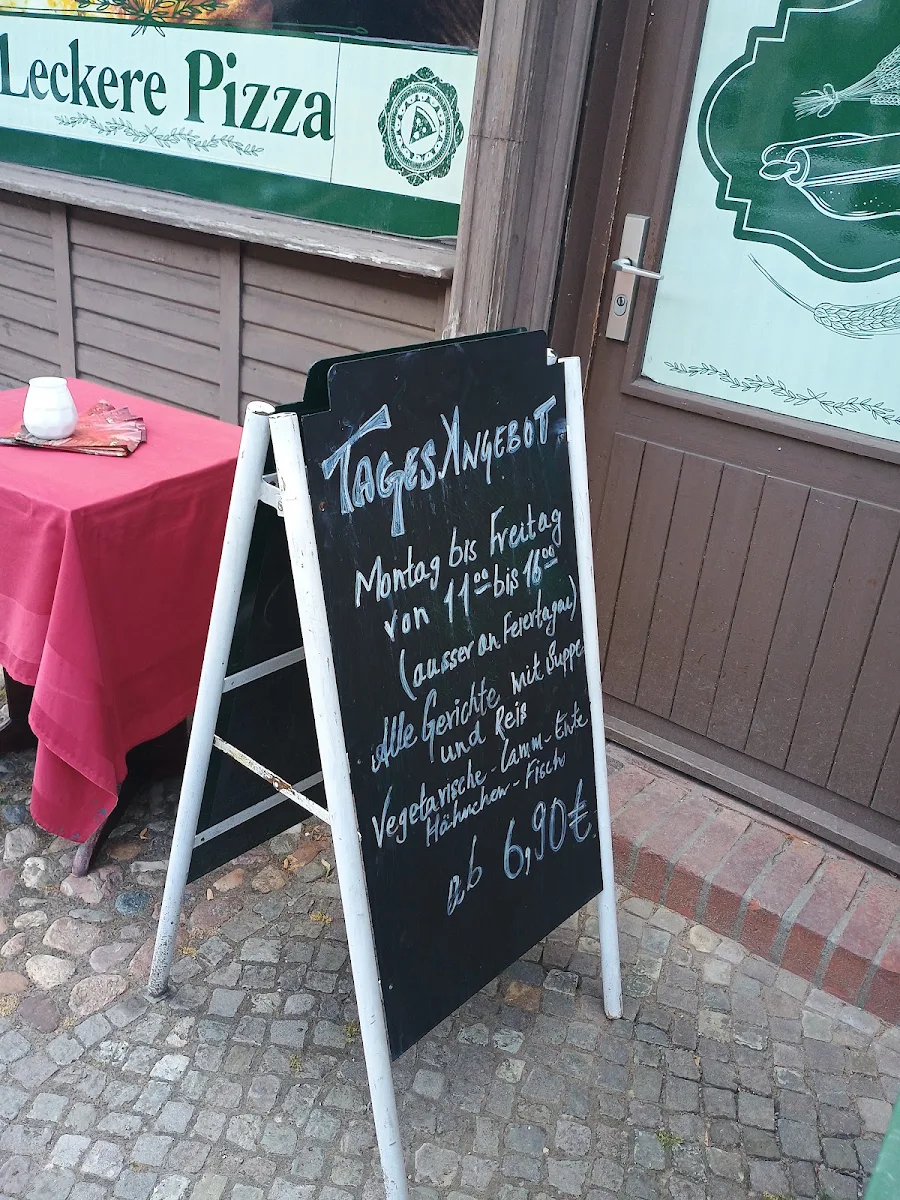 Leckere Pizza
TAGESANGEBOT
Montag bis Freitag
von 11⁰⁰ bis 16⁰⁰
(ausser an Feiertagen)
Alle Gerichte mit Suppe
und Reis
Vegetarische - Lamm - Ente
Hähnchen - Fisch
ab 6,90€.